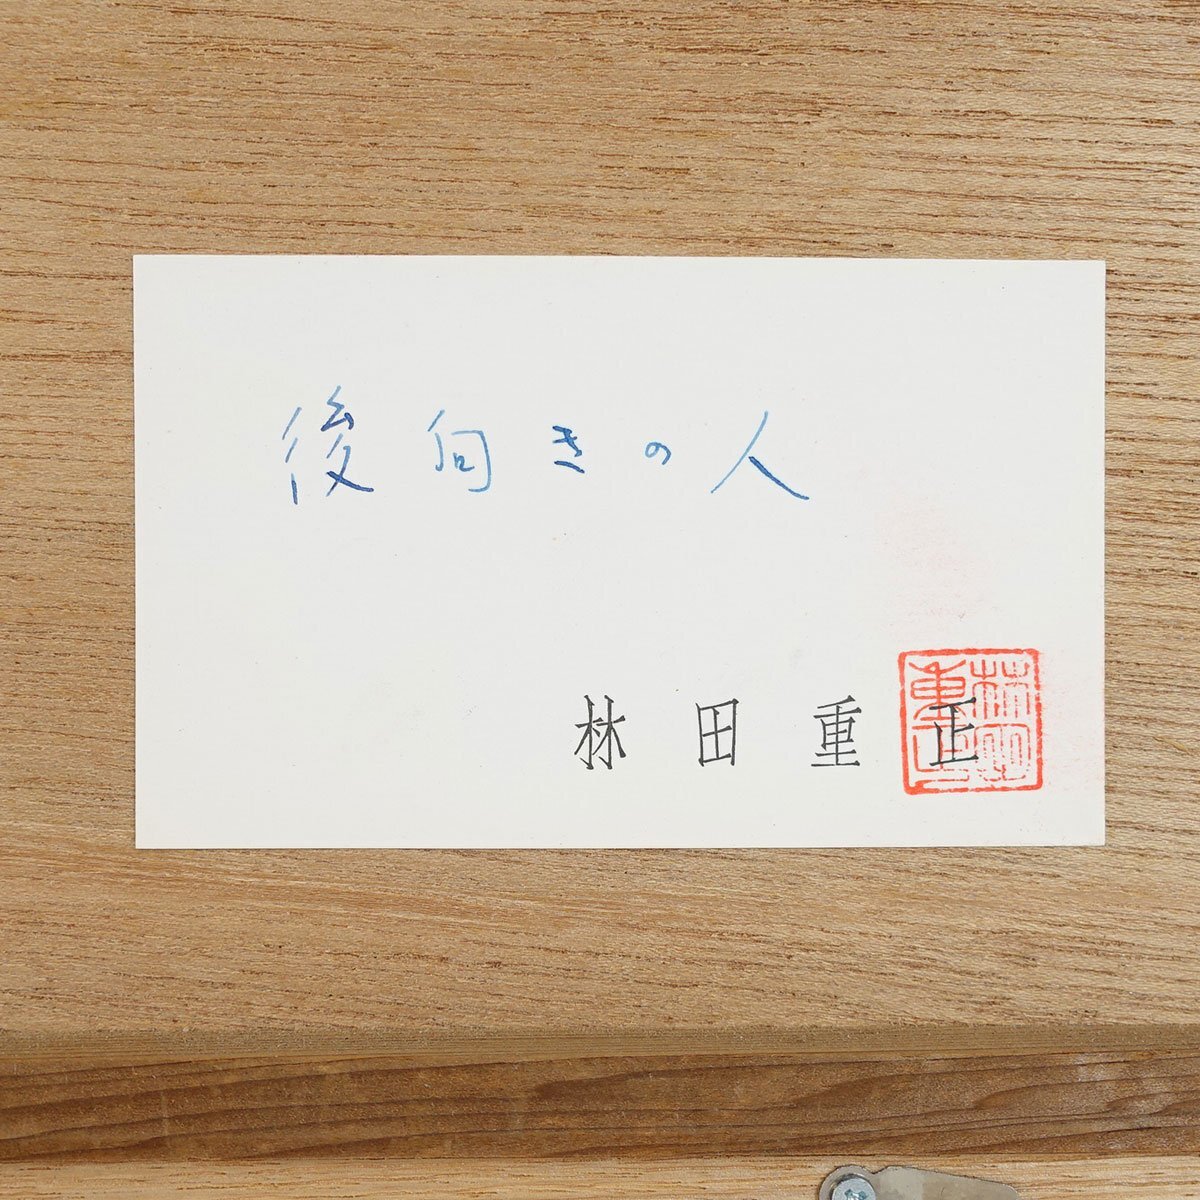 後向きの人
林田重正
林田
重正